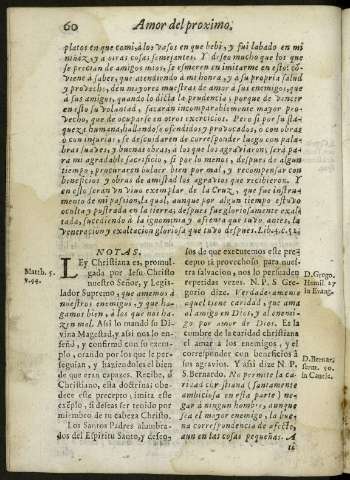 60 Amor del proximo.
platos en que comi, à los vasos en que bebi, y fui labado en mi
niñez, y à otras cosas semejantes. Y deseo mucho que los que
se precian de amigos mios, se esmeren en imitarme en esto: cõ-
viene à saber, que atendiendo à mi honra, y à su propria salud
y provecho, den mayores muestras de amor à sus enemigos, que
à sus amigos, quando lo dicta la prudencia, porque de vencer
en esto su voluntad, sacarán incomparablemente mayor pro-
vecho, que de ocuparse en otros exercicios. Pero si por su fla-
queza humana, hallendose ofendidos y provocados, o con obras
o con injurias, se descuidaren de corresponder luego con pala-
bras suaves, y buenas obras, à los que los agraviaron; será pa-
ra mi agradable sacrificio, si por lo menos, despues de algun
tiempo, procuraren bolver bien por mal, y recompensar con
beneficios y obras de amistad los agravios que recibieron. Y
en esto serán un vivo exemplar de la Cruz, que fue instru-
mento de mi pasion, la qual, aunque por algun tiempo estuvo
oculta y postrada en la tierra, despues fue gloriosamente exal-
tada, sucediendo à la ignominia y afrenta que tuvo antes, la
veneracion y exaltacion gloriosa que tuvo despues. Lib.4.c.52.
NOTAS.
Matth. 5.
v.44.
LEy Christiana es, promul-
gada por Jesu Christo
nuestro Señor, y Legis-
lador Supremo, que amemos à
nuestros enemigos, y que ha-
gamos bien, à los que nos ha-
zen mal. Assi lo mandò su Di-
vina Magestad, y assi nos lo en-
señò, y confirmò con su exem-
plo, orando por los que le per-
seguian, y haziendoles el bien
de que eran capaces. Recibe, ô
Christiano, esta doctrina; obe-
dece este precepto, imita este
exẽplo, si deseas ser tenido por
miembro de tu cabeza Christo.
Los Santos Padres alumbra-
dos del Espiritu Santo, y deseo-
sos de que executemos este pre-
cepto tã provechoso para nues-
tra salvacion, nos lo persuaden
repetidas vezes. N. P. S. Gre-
gorio dize. Verdaderamente
aquel tiene caridad, que ama
al amigo en Dios, y al enemi-
go por amor de Dios. Es la
cumbre de la caridad christiana
el amar à los enemigos, y el
corresponder con beneficios à
los agravios. Y assi dize N. P.
S. Bernardo. No permite la ca-
ridad christiana (santamente
ambiciosa en esta parte) ne-
gar à ningun hombre, aunque
sea el mayor enemigo, la bue-
na correspondencia de afecto,
aun en las cosas pequeñas. A
D. Grego.
Homil. 27
in Evang.
D. Bernar.
serm. 50.
in Cantic.